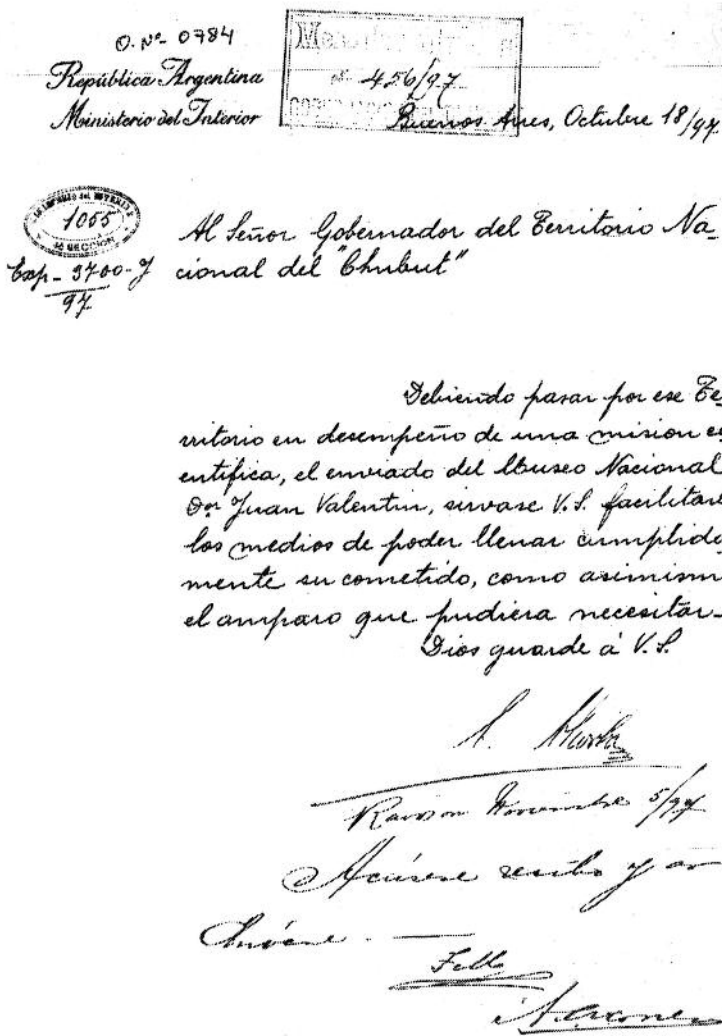 O. Nº 0784
República Argentina
Ministerio del Interior
Nº 456/97
Buenos Aires, Octubre 18/97
1055
Exp - 3700 - J
97
Al Señor Gobernador del Territorio Na-
cional del "Chubut"
Debiendo pasar por ese Te-
rritorio en desempeño de una mision ci
entifica, el enviado del Museo Nacional
Dor Juan Valentin, sirvase V.S. facilitar
los medios de poder llenar cumplida
mente su cometido, como asimism
el amparo que pudiera necesitar-
Dios guarde á V.S.
Rawson Noviembre 5/97
Acúsese recibo y ar
chívese. -